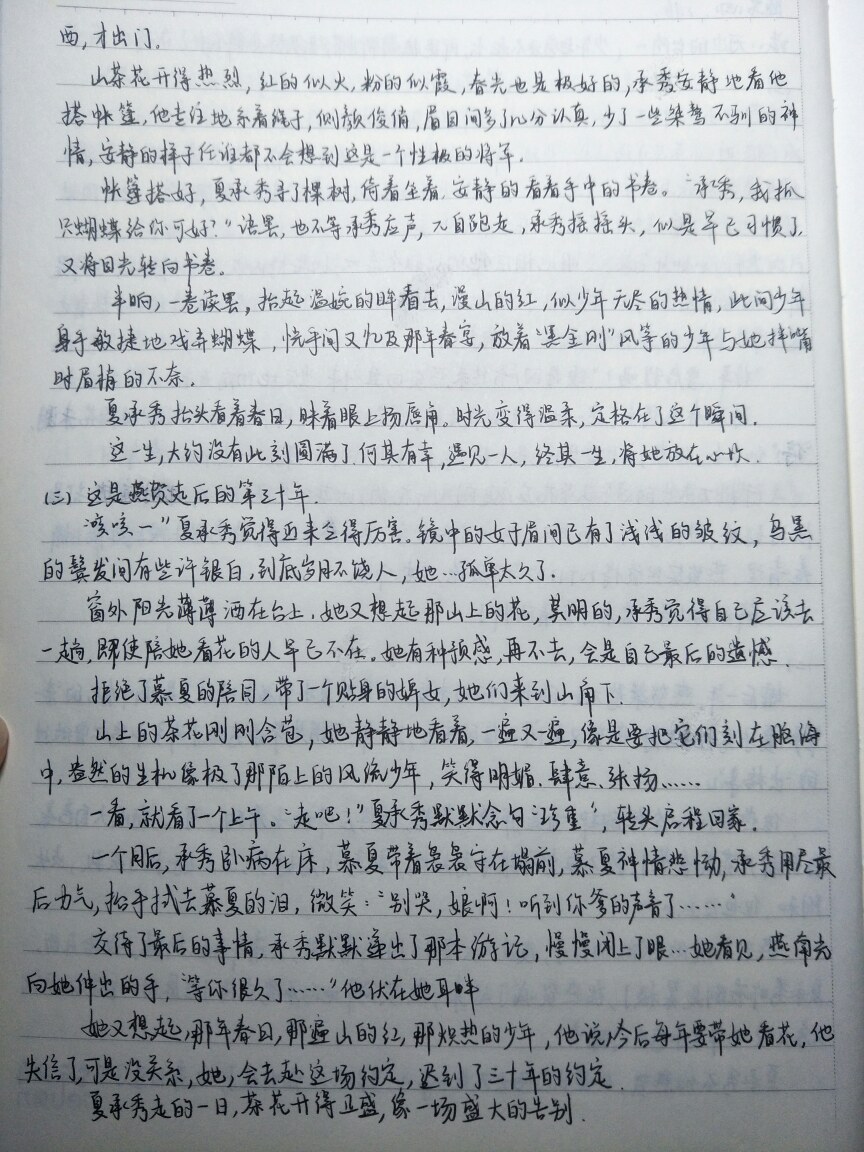 西，才出门．
山茶花开得热烈，红的似火，粉的似霞，春光也是极好的，承秀安静地看他
搭帐篷，他专注地系着绳子，侧颜俊俏，眉目间多了几分认真，少了一些桀骜不驯的神
情，安静的样子任谁都不会想到这是一个性极的将军．
帐篷搭好，夏承秀寻了棵树，倚着坐着，安静的看着手中的书卷。“承秀，我抓
只蝴蝶给你可好？”语罢，也不等承秀应声，兀自跑走，承秀摇摇头，似是早已习惯了，
又将目光转向书卷．
半响，一卷读罢，抬起温婉的眸看去，漫山的红，似少年无尽的热情，此间少年
身手敏捷地戏弄蝴蝶，恍乎间又忆及那年春宴，放着“黑金刚”风筝的少年与她拌嘴
时眉梢的不奈．
夏承秀抬头看着春日，眯着眼上扬唇角．时光变得温柔，定格在了这个瞬间．
这一生，大约没有此刻圆满了．何其有幸，遇见一人，终其一生，将她放在心坎．
（三）这是燕贺走后的第三十年．
“咳咳—”夏承秀觉得近来会得厉害。镜中的女子眉间已有了浅浅的皱纹，乌黑
的鬓发间有些许银白，到底岁月不饶人，她…孤单太久了．
窗外阳光薄薄洒在台上，她又想起那山上的花，莫明的，承秀觉得自己应该去
一趟，即使陪她看花的人早已不在。她有种预感，再不去，会是自己最后的遗憾．
拒绝了慕夏的陪同，带了一个贴身的婢女，她们来到山角下．
山上的茶花刚刚含苞，她静静地看着，一遍又一遍，像是要把它们刻在脑海
中，盎然的生机像极了那陌上的风流少年，笑得明媚、肆意、张扬……
一看，就看了一个上午。“走吧！”夏承秀默默念句“珍重”，转头启程回家．
一个月后，承秀卧病在床，慕夏带着袅袅守在塌前，慕夏神情悲恸，承秀用尽最
后力气，抬手拭去慕夏的泪，微笑：“别哭，娘啊！听到你爹的声音了……”
交待了最后的事情，承秀默默拿出了那本游记，慢慢闭上了眼…她看见，燕南光
向她伸出的手，“等你很久了……”他伏在她耳畔
她又想起，那年春日，那遍山的红，那炽热的少年，他说，今后每年要带她看花，他
失信了，可是没关系，她，会去赴这场约定，迟到了三十年的约定．
夏承秀走的一日，茶花开得正盛，像一场盛大的告别．